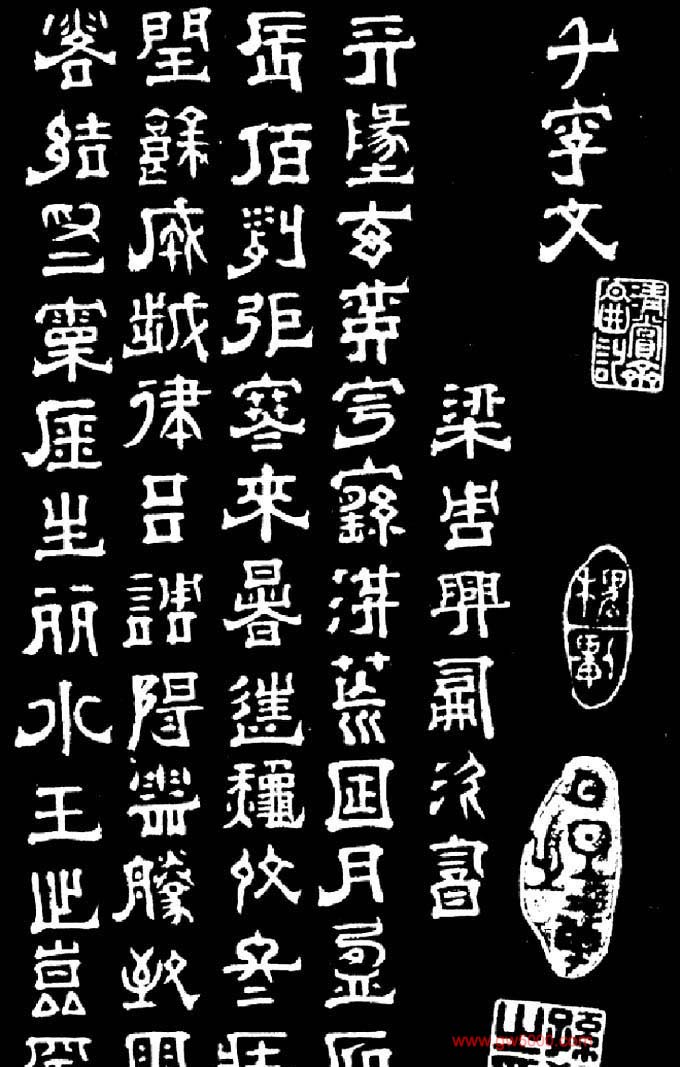 千字文
梁周興嗣次
天地玄黃宇宙洪荒日月盈
辰宿列張寒來暑往秋收冬
閏餘成歲律呂調陽雲騰致雨
露結為霜金生麗水玉出崑